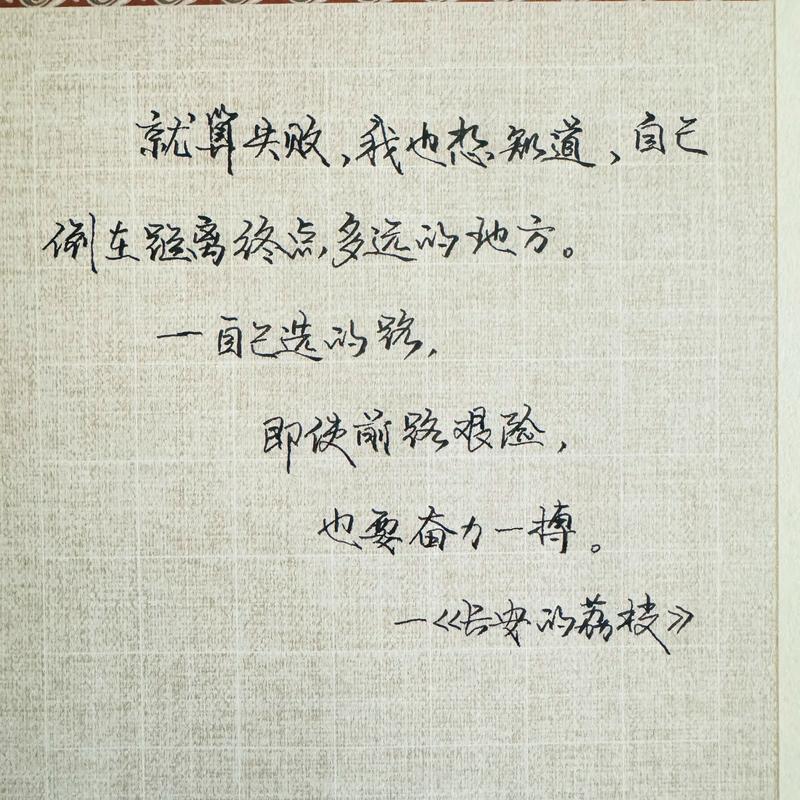 就算失败,我也想知道,自己
倒在距离终点多远的地方。
一自己选的路,
即使前路艰险,
也要奋力一搏。
一《长安的荔枝》